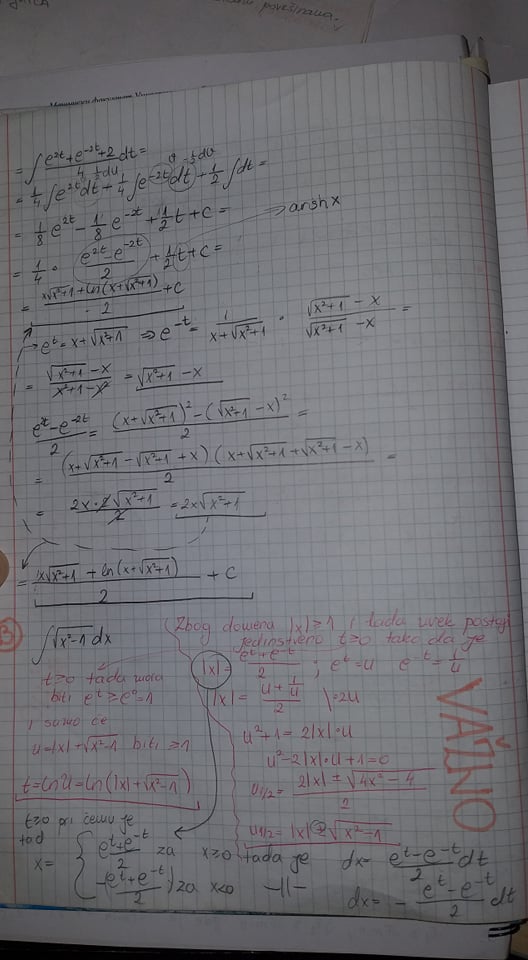 = ∫ (e^{2t}+e^{-2t}+2)/4 dt =
= 1/4 ∫ e^{2t} dt + 1/4 ∫ e^{-2t} dt + 1/2 ∫ dt =
= 1/8 e^{2t} - 1/8 e^{-2t} + 1/2 t + C = → arsh x
= 1/4 · (e^{2t}-e^{-2t})/2 + 1/2 t + C =
= (x√(x²+1) + ln(x+√(x²+1)))/2 + C
→ e^t = x+√(x²+1) ⇒ e^{-t} = 1/(x+√(x²+1)) · (√(x²+1) - x)/(√(x²+1) - x) =
= (√(x²+1) - x)/(x²+1-x²) = √(x²+1) - x
(e^{2t}-e^{-2t})/2 = ((x+√(x²+1))² - (√(x²+1) - x)²)/2 =
= (x+√(x²+1) - √(x²+1) + x)(x+√(x²+1)+√(x²+1) - x)/2 =
= (2x·2√(x²+1))/2 = 2x√(x²+1)
= (x√(x²+1) + ln(x+√(x²+1)))/2 + C
Zbog domena |x|≥1 i tada uvek postoji
jedinstveno t≥0 tako da je
∫√(x²-1) dx
|x| = (e^t+e^{-t})/2 ; e^t=u e^{-t}=1/u
t≥0 tada mora
biti e^t ≥ e^0 = 1
|x| = (u+1/u)/2 \·2u
i samo će
u²+1 = 2|x|·u
u=|x|+√(x²-1) biti ≥1
u²-2|x|·u+1=0
u1/2 = (2|x| ± √(4x²-4))/2
t=ln u = ln(|x|+√(x²-1))
u1/2 = |x| ± √(x²-1)
VAŽNO
t≥0 pri čemu je
tad
x= { (e^t+e^{-t})/2 za x≥0 tada je dx = (e^t-e^{-t})/2 dt
-(e^t+e^{-t})/2 za x<0 -||- dx = -(e^t-e^{-t})/2 dt